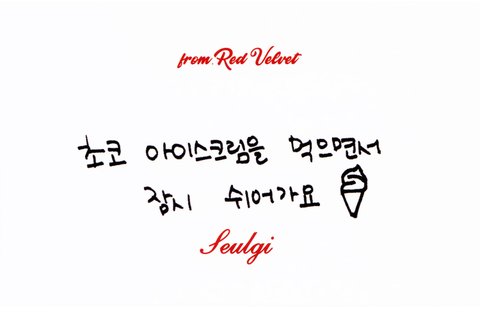 from. Red Velvet
초코 아이스크림을 먹으면서
잠시 쉬어가요
Seulgi